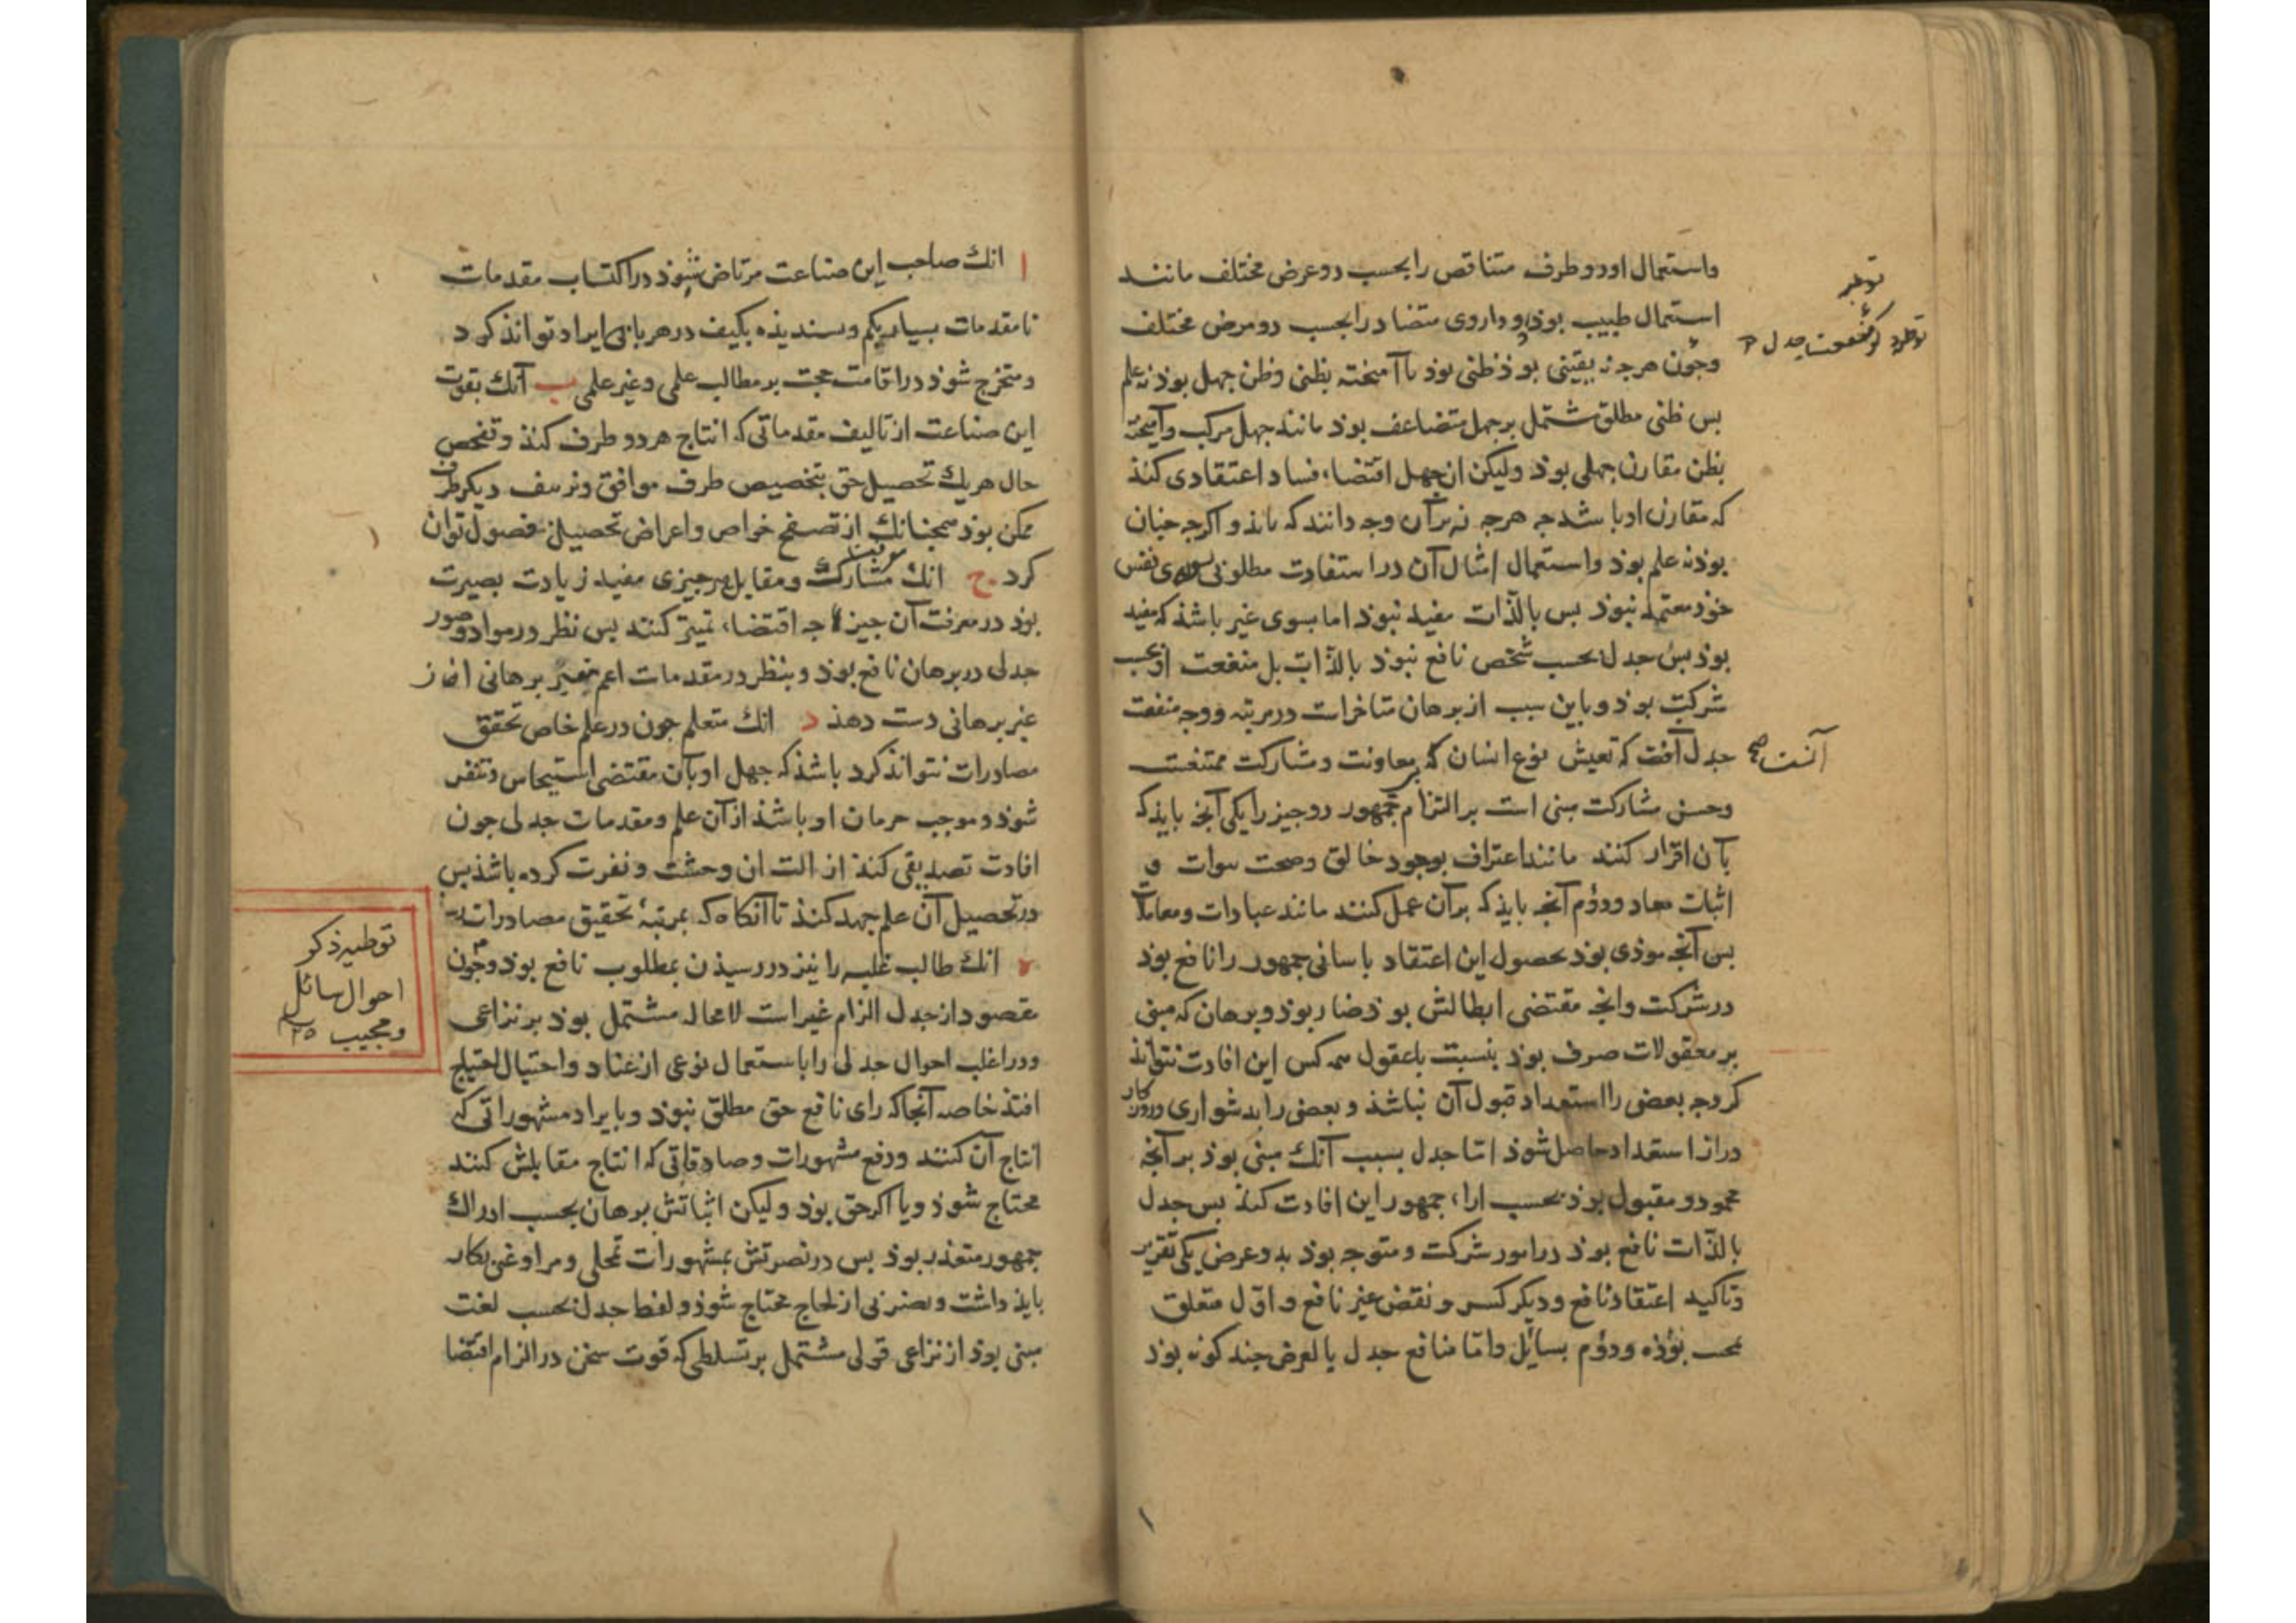 واستعمال او دو طرف متناقض را بحسب دو عرض مختلف مانند
استعمال طبیب بوذ دو داروی متضاد را بحسب دو مرض مختلف
وجون هرجه نه یقینی بوذ ظنی بوذ یا آمیخته بظنی وظن جهل بوذ نه علم
بس ظنی مطلق مشتمل بر جهل متضاعف بوذ مانند جهل مرکب وآمیخته
بظن مقارن جهلی بوذ ولیکن ان جهل اقتضاء فساد اعتقادی کنذ
که مقارن او باشد جه هرجه نه بر آن وجه دانند که بایذ و اکرجه جنان
بوذ نه علم بوذ واستعمال امثال آن در استفادت مطلوبی بسوی نفس
خوذ معتمد نبوذ بس بالذات مفید نبوذ اما بسوی غیر باشذ که مفید
بوذ بس جدل بحسب شخص نافع نبوذ بالذات بل منفعت او بحسب
شرکت بوذ و باین سبب از برهان متاخرست در مرتبه و وجه منفعت
جدل آنست که تعیش نوع انسان بی معاونت و مشارکت ممتنعست
وحسن مشارکت مبنی است بر التزام جمهور دو جیز را یکی آنجه بایذ که
بآن اقرار کنند مانند اعتراف بوجود خالق وصحت نبوات و
اثبات معاد ودوم آنجه بایذ که بر آن عمل کنند مانند عبادات ومعاملات
بس آنجه موذی بوذ بحصول این اعتقاد باسانی جمهور را نافع بوذ
در شرکت وانجه مقتضی ابطالش بوذ ضار بوذ و برهان که مبنی
بر معقولات صرف بوذ بنسبت با عقول همه کس این افادت نتواند
کرد جه بعضی را استعداد قبول آن نباشذ و بعضی را بدشواری وروزکار
دراز استعداد حاصل شوذ اما جدل بسبب آنک مبنی بوذ بر آنجه
محمود و مقبول بوذ بحسب اراء جمهور این افادت کند بس جدل
بالذات نافع بوذ در امور شرکت و متوجه بوذ بدو غرض یکی تقریر
وتاکید اعتقاد نافع و دیکر کسر و نقض غیر نافع و اول متعلق
بمجیب بوذه ودوم بسایل واما منافع جدل بالعرض جند کونه بوذ
توطیه
منفعت جدل
آنست صح
ا انک صاحب این صناعت مرتاض شوذ در اکتساب مقدمات
تا مقدمات بسیار بکم وبسندیذه بکیف در هر بابی ایراد تواند کرد
ومتخرج شوذ در اقامت حجت بر مطالب علمی وغیر علمی ب آنک بقوت
این صناعت از تالیف مقدماتی که انتاج هر دو طرف کنذ وتفحص
حال هریک تحصیل حق بتخصیص طرف موافق وتزییف دیکر طرف
ممکن بوذ همجنانک از تصفح خواص واعراض تحصیل فصول توان
کرد ج انک معرفت مشارک ومقابل هر جیزی مفید زیادت بصیرت
بوذ در معرفت آن جیز جه اقتضاء تمییز کنند بس نظر در مواد وصور
جدلی در برهان نافع بوذ و بنظر در مقدمات اعم تمییز برهانی از
غیر برهانی دست دهد د انک متعلم جون در علم خاص تحقق
مصادرات نتواند کرد باشذ که جهل او بآن مقتضی استیحاش وتنفر
شوذ وموجب حرمان او باشذ از آن علم ومقدمات جدلی جون
افادت تصدیقی کند ازالت ان وحشت ونفرت کرده باشذ بس
در تحصیل آن علم جهد کنذ تا آنکاه که بمرتبۀ تحقیق مصادرات رسد
ه انک طالب غلبه را نیز در رسیذن بمطلوب نافع بوذ وجون
مقصود از جدل الزام غیرست لا محاله مشتمل بوذ بر نزاعی
ودر اغلب احوال جدلی را باستعمال نوعی از عناد واحتیال احتیاج
افتذ خاصه آنجا که رای نافع حق مطلق نبوذ وبایراد مشهوراتی که
انتاج آن کنند ودفع مشهورات وصادقاتی که انتاج مقابلش کنند
محتاج شوذ ویا اکر حق بوذ ولیکن اثباتش ببرهان بحسب ادراک
جمهور متعذر بوذ بس در نصرتش بمشهورات تمحلی ومراوغتی بکار
بایذ داشت وبضربی از لجاج محتاج شوذ ولفظ جدل بحسب لغت
مبنی بوذ از نزاعی قولی مشتمل بر تسلطی که قوت سخن در الزام اقتضا
توطیه ذکر
احوال سائل
ومجیب